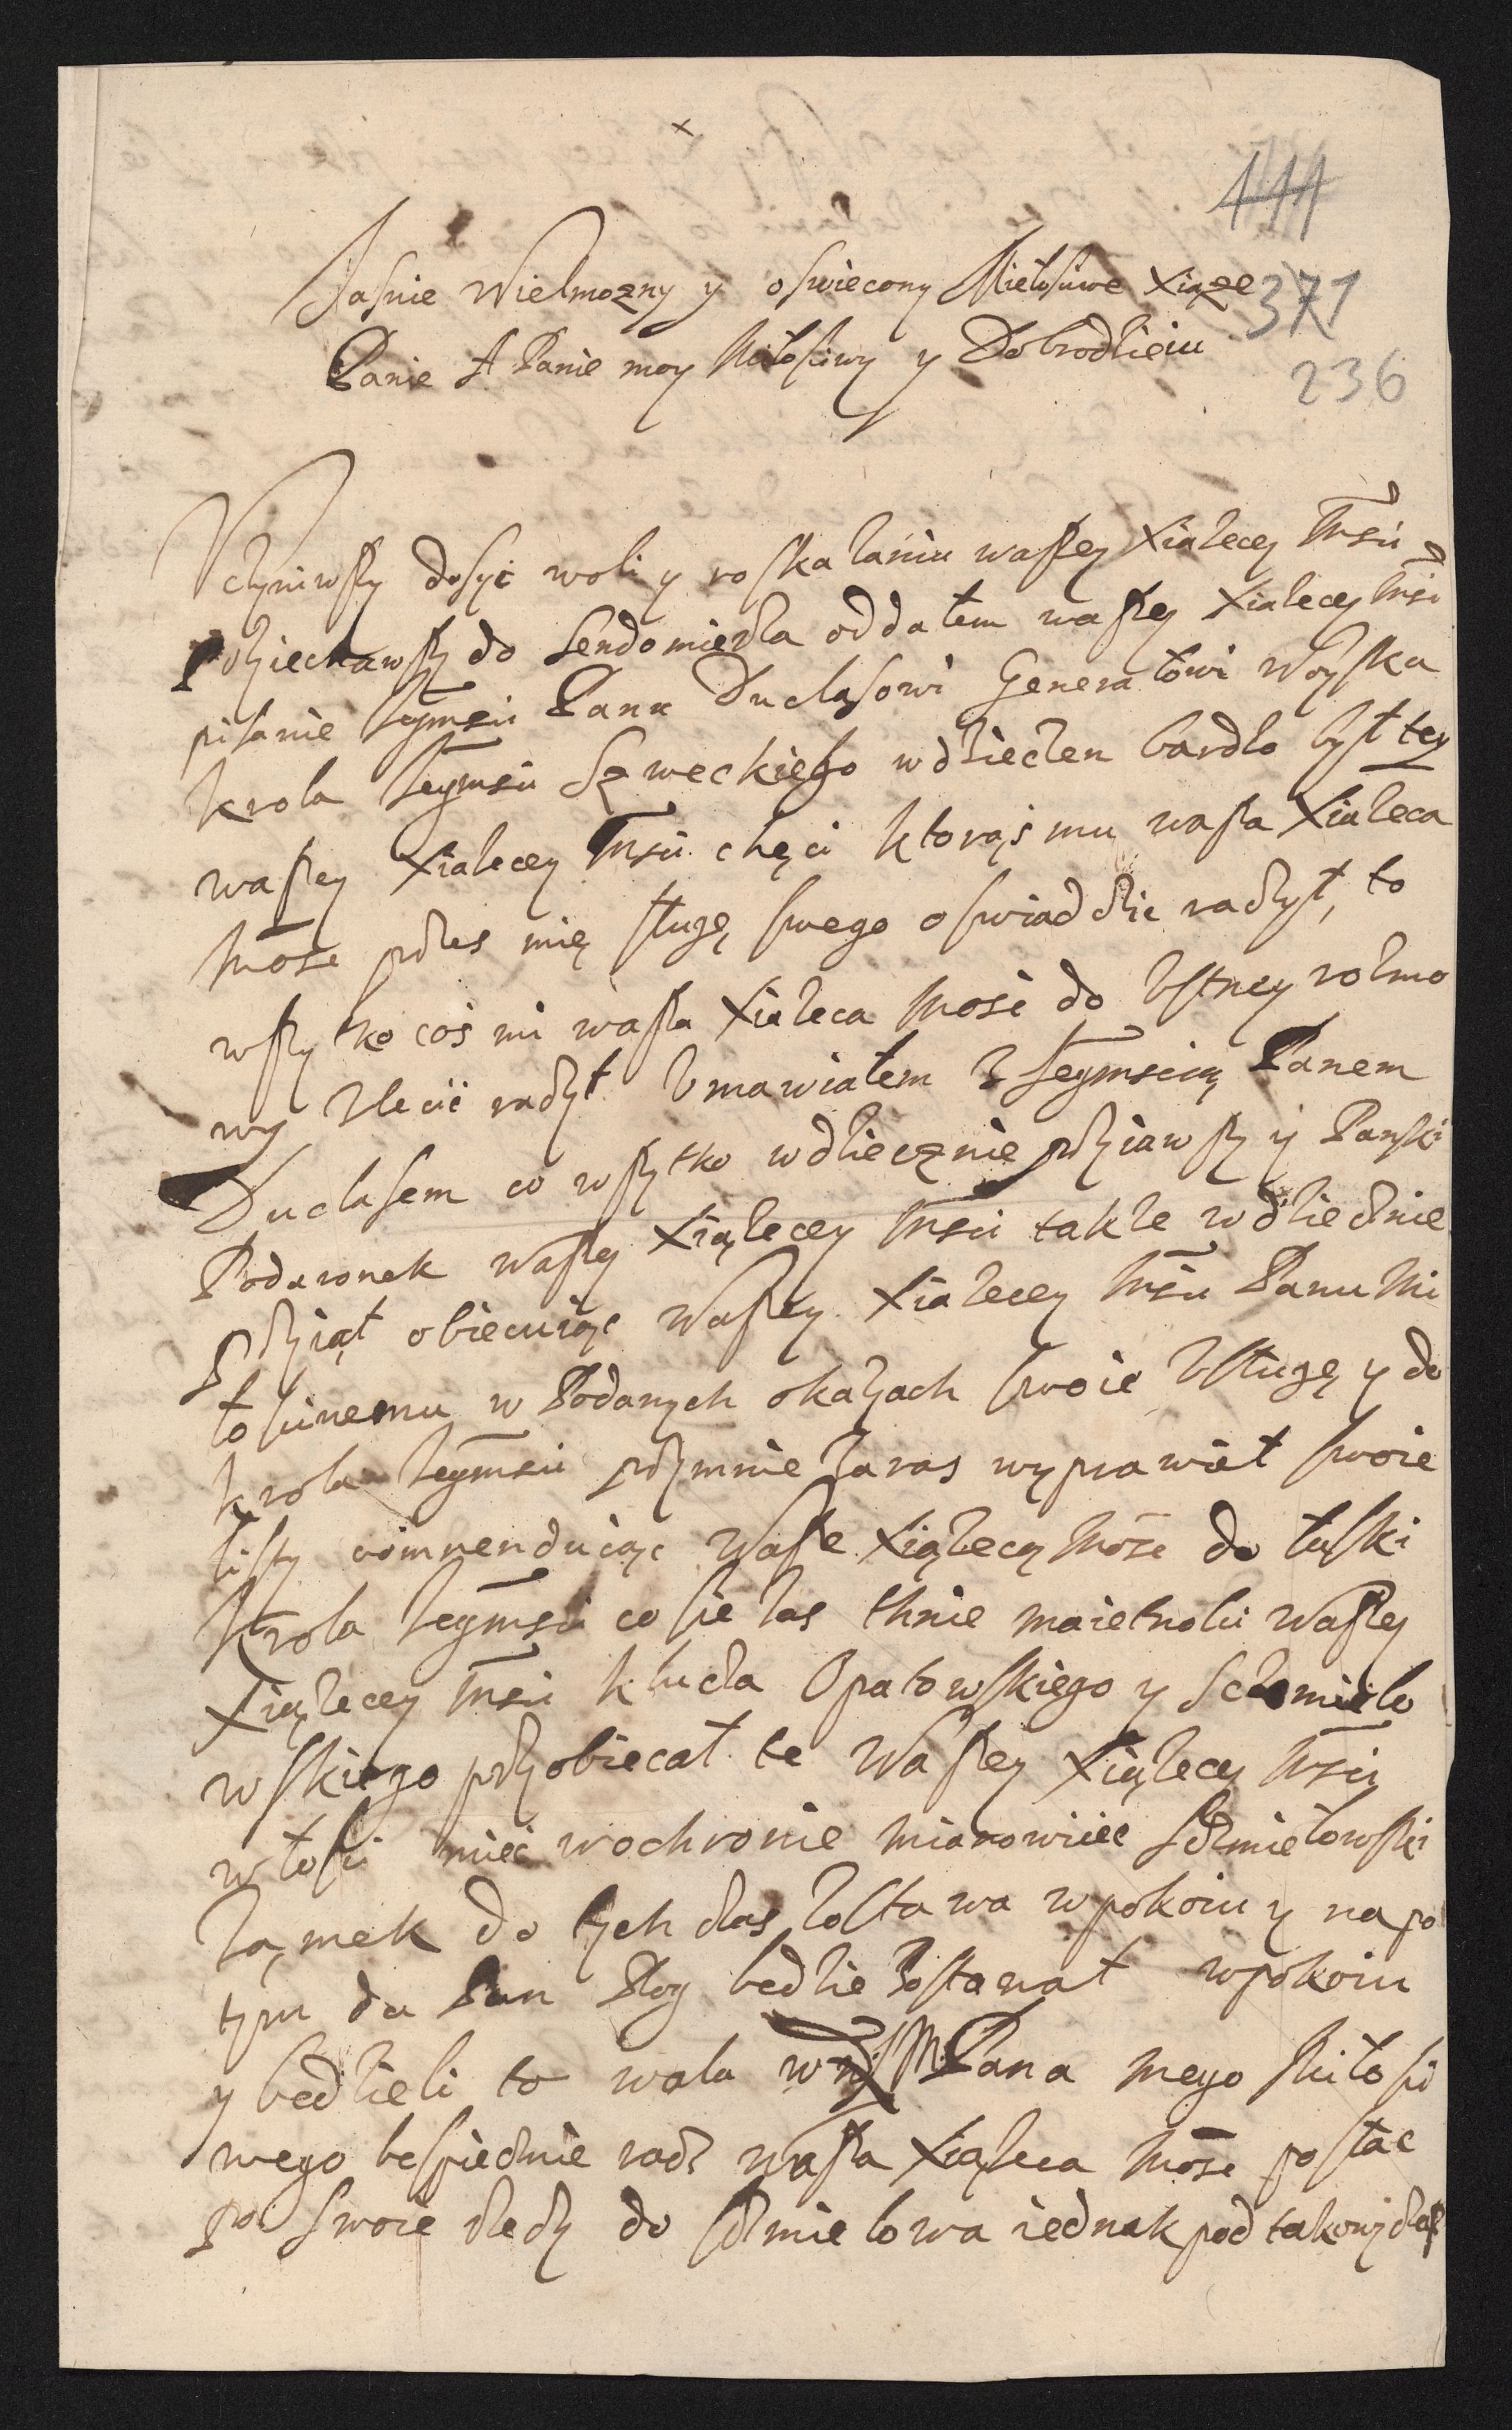 111
Jasnie Wielmozny y oswiecony Miełosciwe Xiąze
371
Panie A Panie moy Miłosciwy y Dobrodzieiu
236
Vczyniwszy dosyc woli y roskazaniu waszey Xiazecey Mści
Przyiechawszy do Sendomierza oddałem waszey Xiazecey Mści
pisanie Jegmści Panu Duclasowi Generałowi Woyska
krola Jegmści Szweckiego wdzieczen bardzo był tey
waszey Xiazecey Mści chęci ktorąś mu wasza Xiązeca
Mość przes mię sługę swego oswiadczic raczył, to
wszytko coś mi wasza Xiązeca Mość do Ustney rozmo
wy zlecic raczył Umawiałem z Jegmscią Panem
Duclasem co wszytko wdziecznie przyiawszy y Panski
Podaronek waszey Xiązecey Mści takze wdziecznie
Przyiął obiecuiąc Waszey Xiązecey Mści Panu Mi
łosciwemu w Podanych okazach swoie Usługę y do
krola Jegmści przymnie zaras wyprawiał swoie
listy commenduiąc Wasze Xiązecą Mość do łaski
Krola Jegmści co sie zas tknie maietnosci Waszey
Xiązecey Mści klucza Opatowskiego y Sczmielo
wskiego przyobiecał te Waszey Xiązecey Mści
włosci mieć wochronie mianowicie Sczmiełowski
Zamek do tych czas zostawa wpokoiu y napo
tym da Pan Bog bedzie zostawał wpokoiu
y bedzieli to wola WM Pana mego Miłosci
wego bespiecznie racz Wasza Xiązeca Mość posłac
Po swoie rzeczy do Sczmielowa iednak pod takowy czas